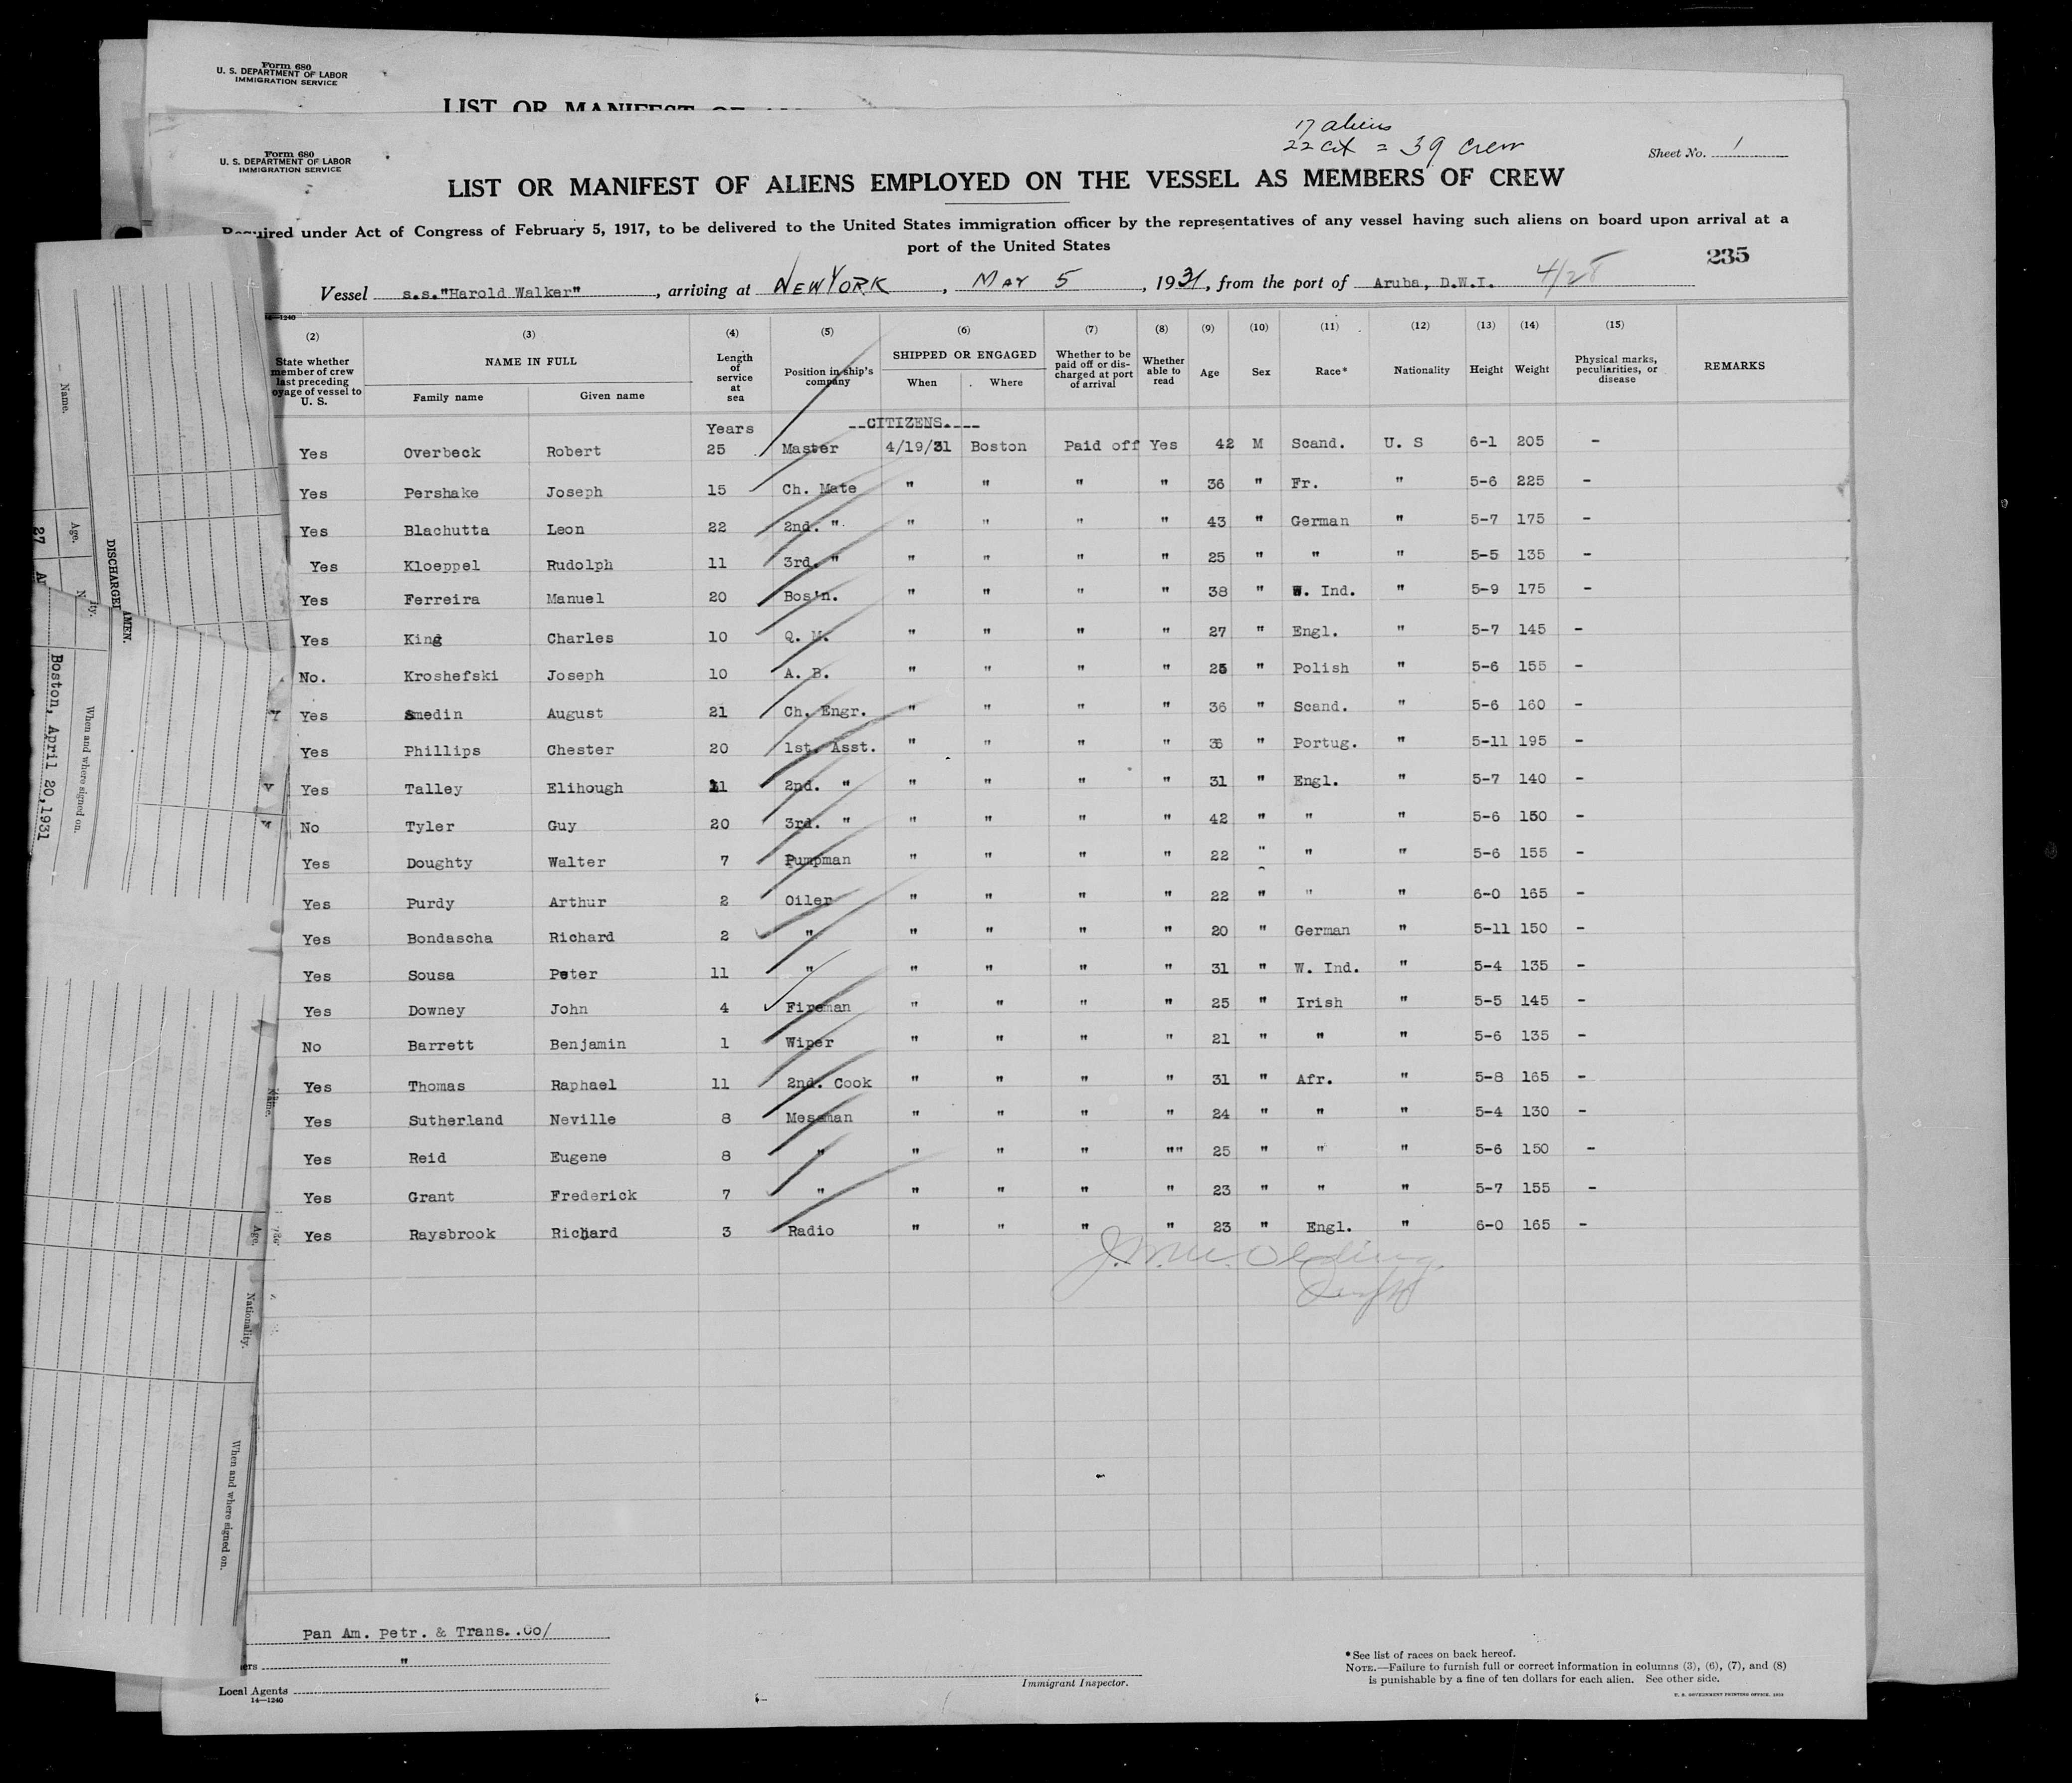 Form 680
U. S. DEPARTMENT OF LABOR
IMMIGRATION SERVICE
LIST OR MANIFEST OF
17 aliens
22 cit = 39 crew
Form 680
U. S. DEPARTMENT OF LABOR
IMMIGRATION SERVICE
Sheet No. 1
LIST OR MANIFEST OF ALIENS EMPLOYED ON THE VESSEL AS MEMBERS OF CREW
Required under Act of Congress of February 5, 1917, to be delivered to the United States immigration officer by the representatives of any vessel having such aliens on board upon arrival at a
port of the United States
235
Vessel s.s."Harold Walker", arriving at NEW YORK, MAY 5, 1931, from the port of Aruba, D.W.I. 4/28
14—1240
(2) (3) (4) (5) (6) (7) (8) (9) (10) (11) (12) (13) (14) (15)
State whether member of crew last preceding voyage of vessel to U. S. NAME IN FULL Family name Given name Length of service at sea Position in ship's company SHIPPED OR ENGAGED When Where Whether to be paid off or discharged at port of arrival Whether able to read Age Sex Race* Nationality Height Weight Physical marks, peculiarities, or disease REMARKS
Years --CITIZENS.----
Yes Overbeck Robert 25 Master 4/19/31 Boston Paid off Yes 42 M Scand. U. S 6-1 205 -
Yes Pershake Joseph 15 Ch. Mate " " " " 36 " Fr. " 5-6 225 -
Yes Blachutta Leon 22 2nd. " " " " " 43 " German " 5-7 175 -
Yes Kloeppel Rudolph 11 3rd. " " " " " 25 " " " 5-5 135 -
Yes Ferreira Manuel 20 Bos'n. " " " " 38 " W. Ind. " 5-9 175 -
Yes King Charles 10 Q. M. " " " " 27 " Engl. " 5-7 145 -
No. Kroshefski Joseph 10 A. B. " " " " " Polish " 5-6 155 -
Yes Smedin August 21 Ch. Engr. " " " " 36 " Scand. " 5-6 160 -
Yes Phillips Chester 20 1st. Asst. " " " " " Portug. " 5-11 195 -
Yes Talley Elihough 2nd. " " " " " 31 " Engl. " 5-7 140 -
No Tyler Guy 20 3rd. " " " " " 42 " " " 5-6 150 -
Yes Doughty Walter 7 Pumpman " " " " 22 " " " 5-6 155 -
Yes Purdy Arthur 2 Oiler " " " " 22 " " " 6-0 165 -
Yes Bondascha Richard 2 " " " " " 20 " German " 5-11 150 -
Yes Sousa Peter 11 " " " " " 31 " W. Ind. " 5-4 135 -
Yes Downey John 4 Fireman " " " " 25 " Irish " 5-5 145 -
No Barrett Benjamin 1 Wiper " " " " 21 " " " 5-6 135 -
Yes Thomas Raphael 11 2nd. Cook " " " " 31 " Afr. " 5-8 165 -
Yes Sutherland Neville 8 Messman " " " " 24 " " " 5-4 130 -
Yes Reid Eugene 8 " " " " "" 25 " " " 5-6 150 -
Yes Grant Frederick 7 " " " " " 23 " " " 5-7 155 -
Yes Raysbrook Richard 3 Radio " " " " 23 " Engl. " 6-0 165 -
Pan Am. Petr. & Trans..Co/
"
Local Agents
14—1240
Immigrant Inspector.
*See list of races on back hereof.
NOTE.—Failure to furnish full or correct information in columns (3), (6), (7), and (8)
is punishable by a fine of ten dollars for each alien. See other side.
U. S. GOVERNMENT PRINTING OFFICE
Name.
Age.
27
DISCHARGED
When and where signed on.
Boston, April 20,1931
Name.
Age.
Nationality.
When and where signed on.